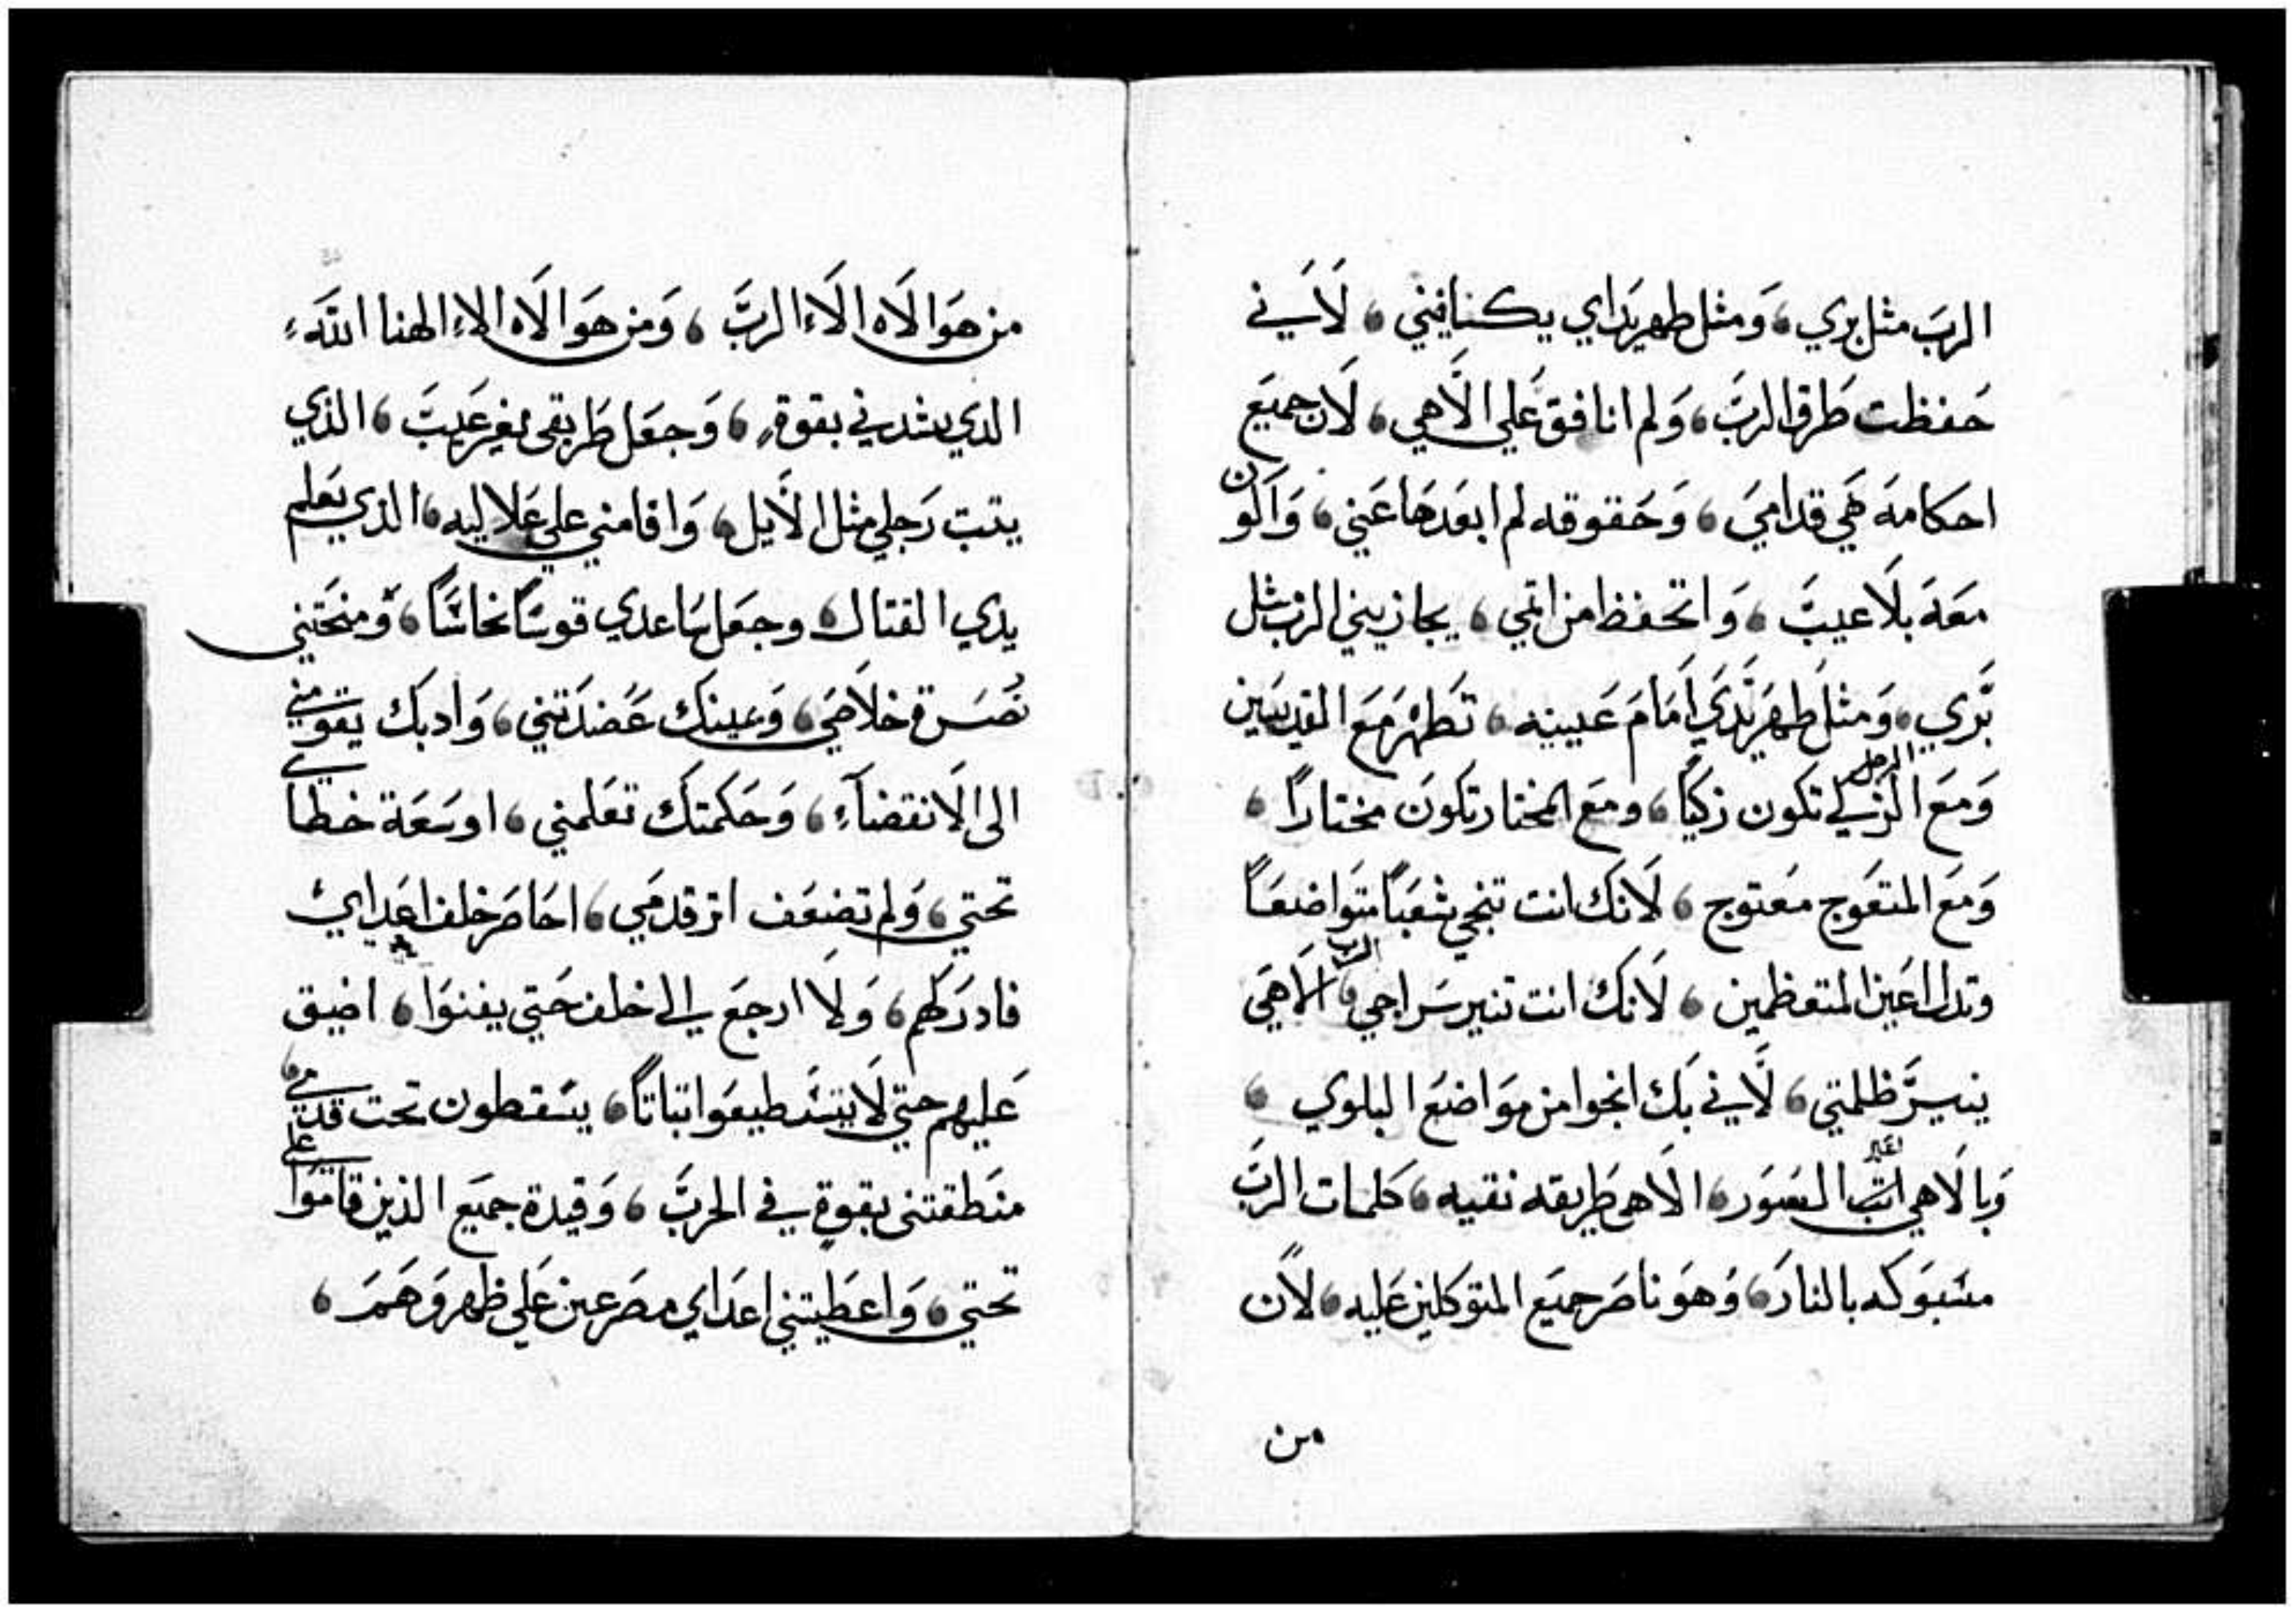 الربَ مثل بري، وَمثل طهر يَداي يكافيني، لاَني
حَفظت طَرق الربَّ، وَلم انافق عَلي الاَهي، لاَن جميَع
احكامهَ هَي قدامَي، وَحَقوقه لم ابعَدهَا عَني، وَاَكون
مَعهَ بلاَ عيبَّ، وَاتحفظ من اثمي، يجازيني الرب مثل
بَّري، وَمثل طهر يَدَّي اَمَامَ عَيينه، تَطهْر مَعَ القديسَين
وَمَع الرجل الزكي تكون زكيًا، ومَع المختار تَكونَ مختارًا،
وَمَع المتعَوج مَعتوج، لاَنَك انت تنجي شعَبًا متَواضعَاً
وتدل اعَين المتعَظمين، لاَنك انت تنير سَراجي، الرب الاَهَي
ينيرَّ ظلمتي، لاَّني بَك انجوا من مَوَاضعَ البلوي،
وَبالاَهي اثب السَور، الاَهي طَريقه نقيه، كَلمات الربَّ
مسَبَوكَه بالنارَ، وَهَو ناصَر جميَع المتوَكلين عَليه، لاَن
من
من هَوَ الاَه الاَء الربَّ، وَمن هَوَ الاَه الاء الهنا اللّهَ،
الدي يشدني بقوةِ، وَجعَل طَريقي بغير عَيبَّ، الذي
يتبت رَجلي مثل الاَّيل، وَاقامني علي عَلاليه، الذي يَعَلم
يدي القتال، وجعَل سَاعدي قوسًَا نحاسًَّا، وَمنحَتني
نُصَرة خلاَصَي، وَيمينَك عَضدَتني، وَادبَك يقومني
الى الاَنقضاَءِ، وَحَكمتَك تعَلمني، اوسَعَة خطاي
تحتي، وَلم تضعَف اثر قدمَي، احَاصَر خلف اعَداي
فادرَكهم، وَلاَ ارجعَ الي خلف حَتي يفنوَا، اضيق
عَليهم حتي لاَ يسَتطيعَوا تباتًا، يسَقطون تحت قدمي،
منَطقتني بقوةٍ في الحربَّ، وَقيدة جميَع الذين قامَوَا علي
تحتي، وَاعطَيتني اعدَاي مصَرعين عَلي ظهَورَهَمَ،